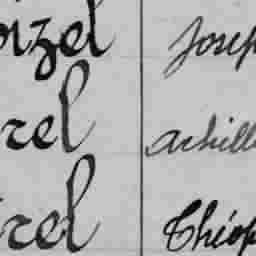 oizel Josep
rel Achill
rel Théop